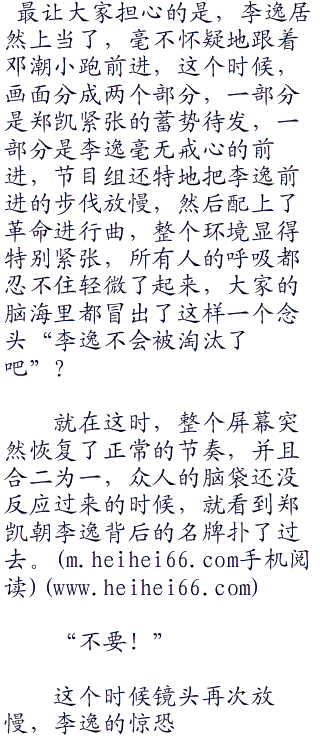 最让大家担心的是，李逸居
然上当了，毫不怀疑地跟着
邓潮小跑前进，这个时候，
画面分成两个部分，一部分
是郑凯紧张的蓄势待发，一
部分是李逸毫无戒心的前
进，节目组还特地把李逸前
进的步伐放慢，然后配上了
革命进行曲，整个环境显得
特别紧张，所有人的呼吸都
忍不住轻微了起来，大家的
脑海里都冒出了这样一个念
头“李逸不会被淘汰了
吧”？
就在这时，整个屏幕突
然恢复了正常的节奏，并且
合二为一，众人的脑袋还没
反应过来的时候，就看到郑
凯朝李逸背后的名牌扑了过
去。(m.heihei66.com手机阅
读)(www.heihei66.com)
“不要！”
这个时候镜头再次放
慢，李逸的惊恐